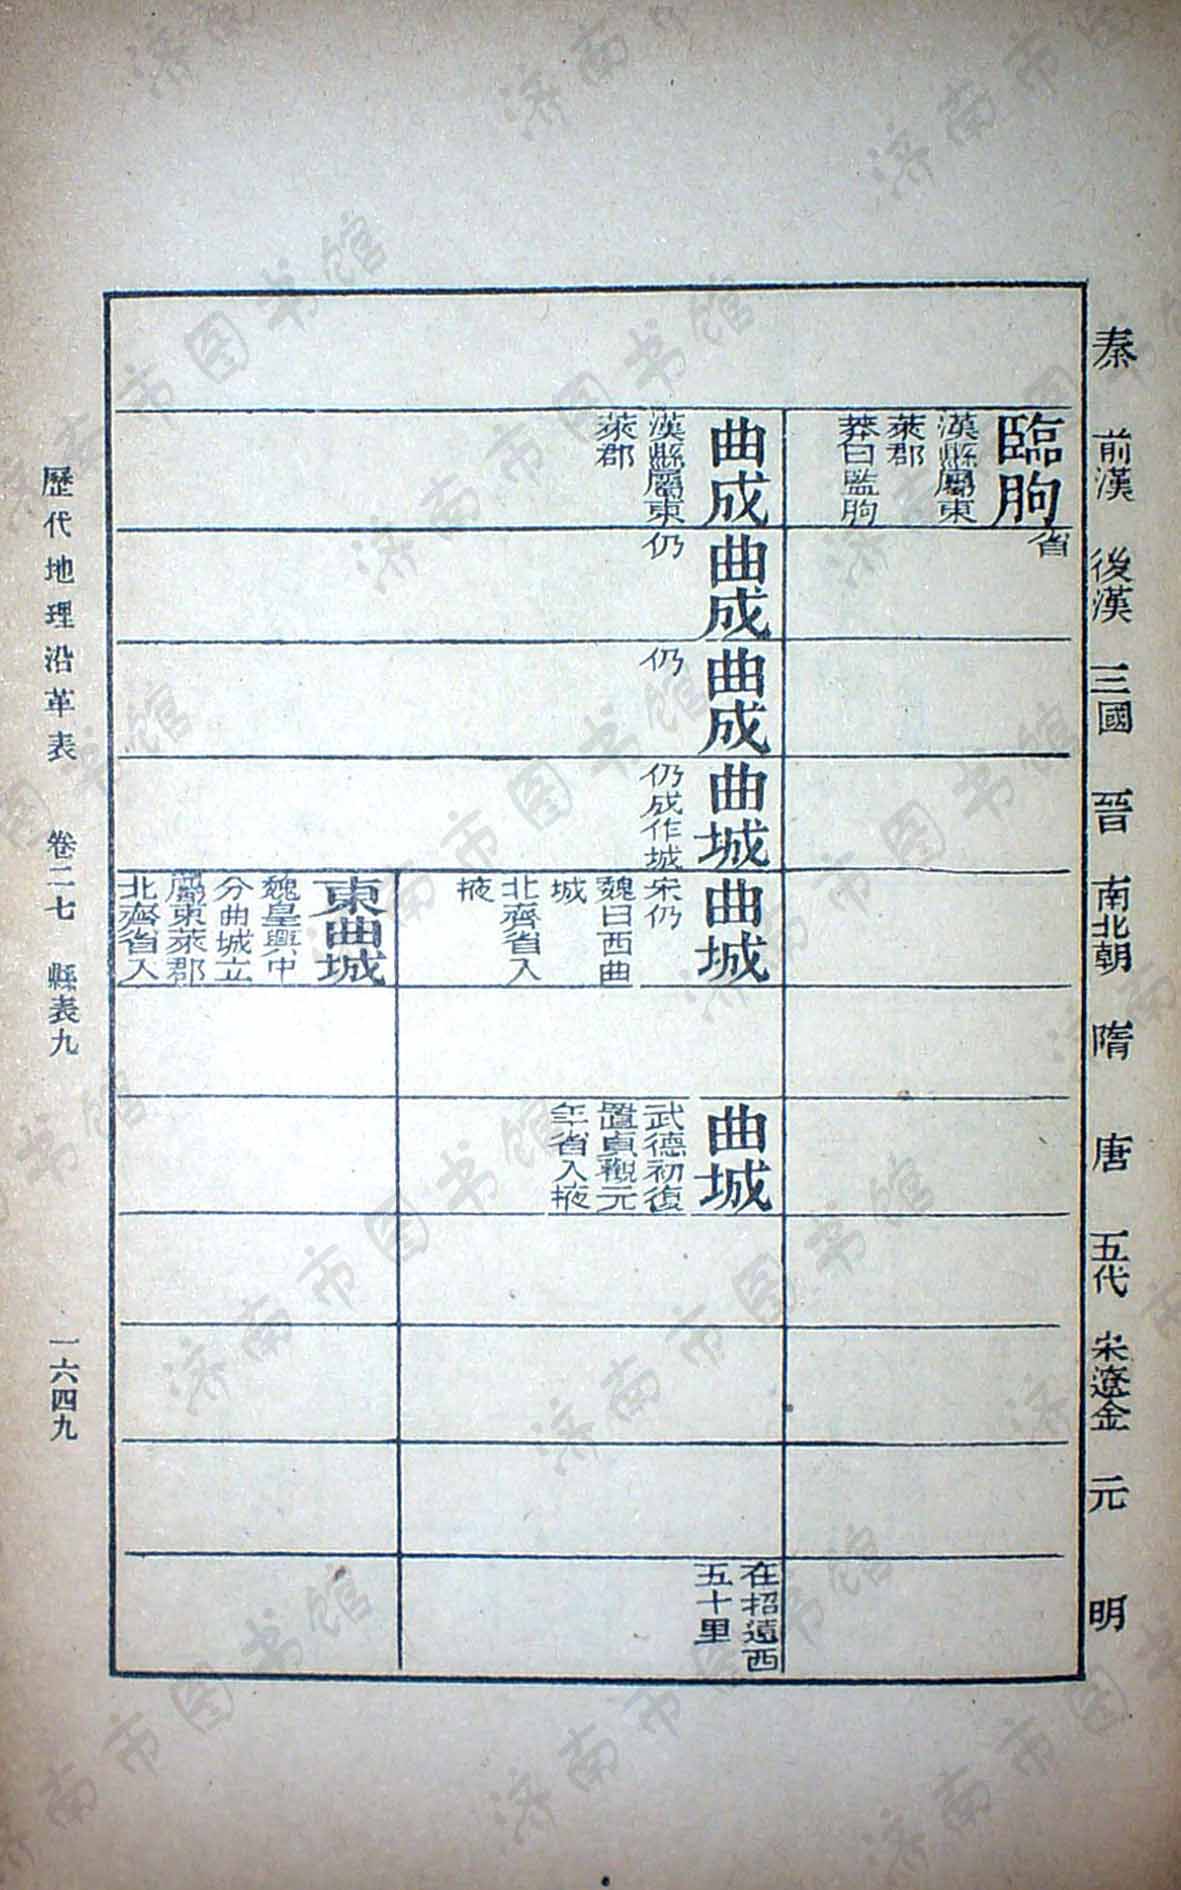 秦
前漢
後漢
三國
晉
南北朝
隋
唐
五代
宋遼金
元
明
臨朐
漢縣屬東
萊郡
莽曰監朐
省
曲成
漢縣屬東
萊郡
曲成
仍
曲成
仍
曲城
仍成作城
曲城
宋仍
魏曰西曲
城
北齊省入
掖
曲城
武德初復
置貞觀元
年省入掖
在招遠西
五十里
東曲城
魏皇興中
分曲城立
屬東萊郡
北齊省入
歷代地理沿革表 卷二七 縣表九 一六四九
济南市图书馆